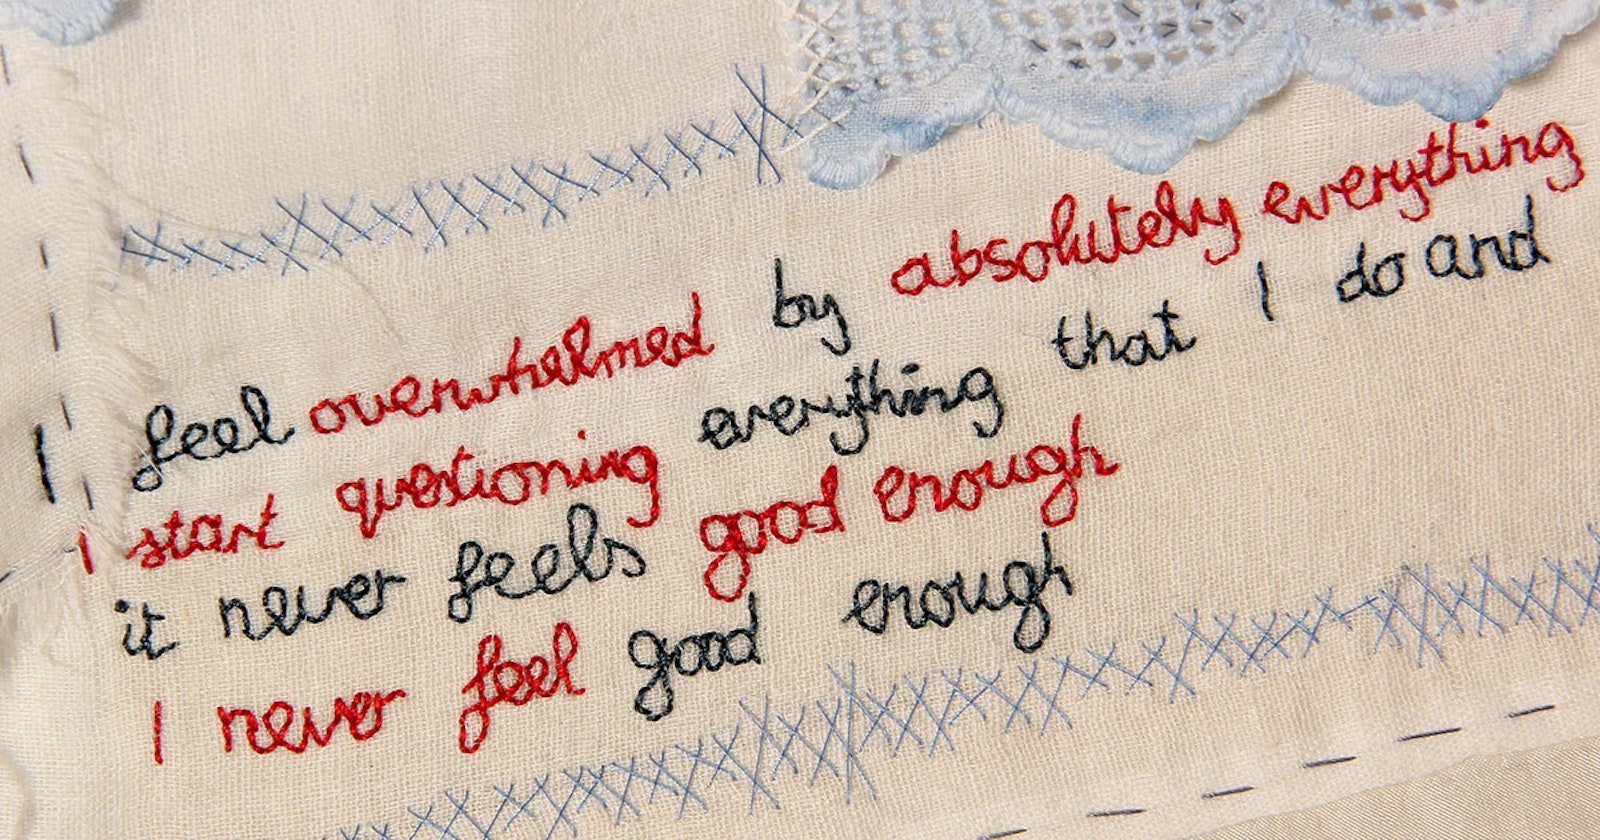 I feel overwhelmed by absolutely everything
I start questioning everything that I do and
it never feels good enough
I never feel good enough